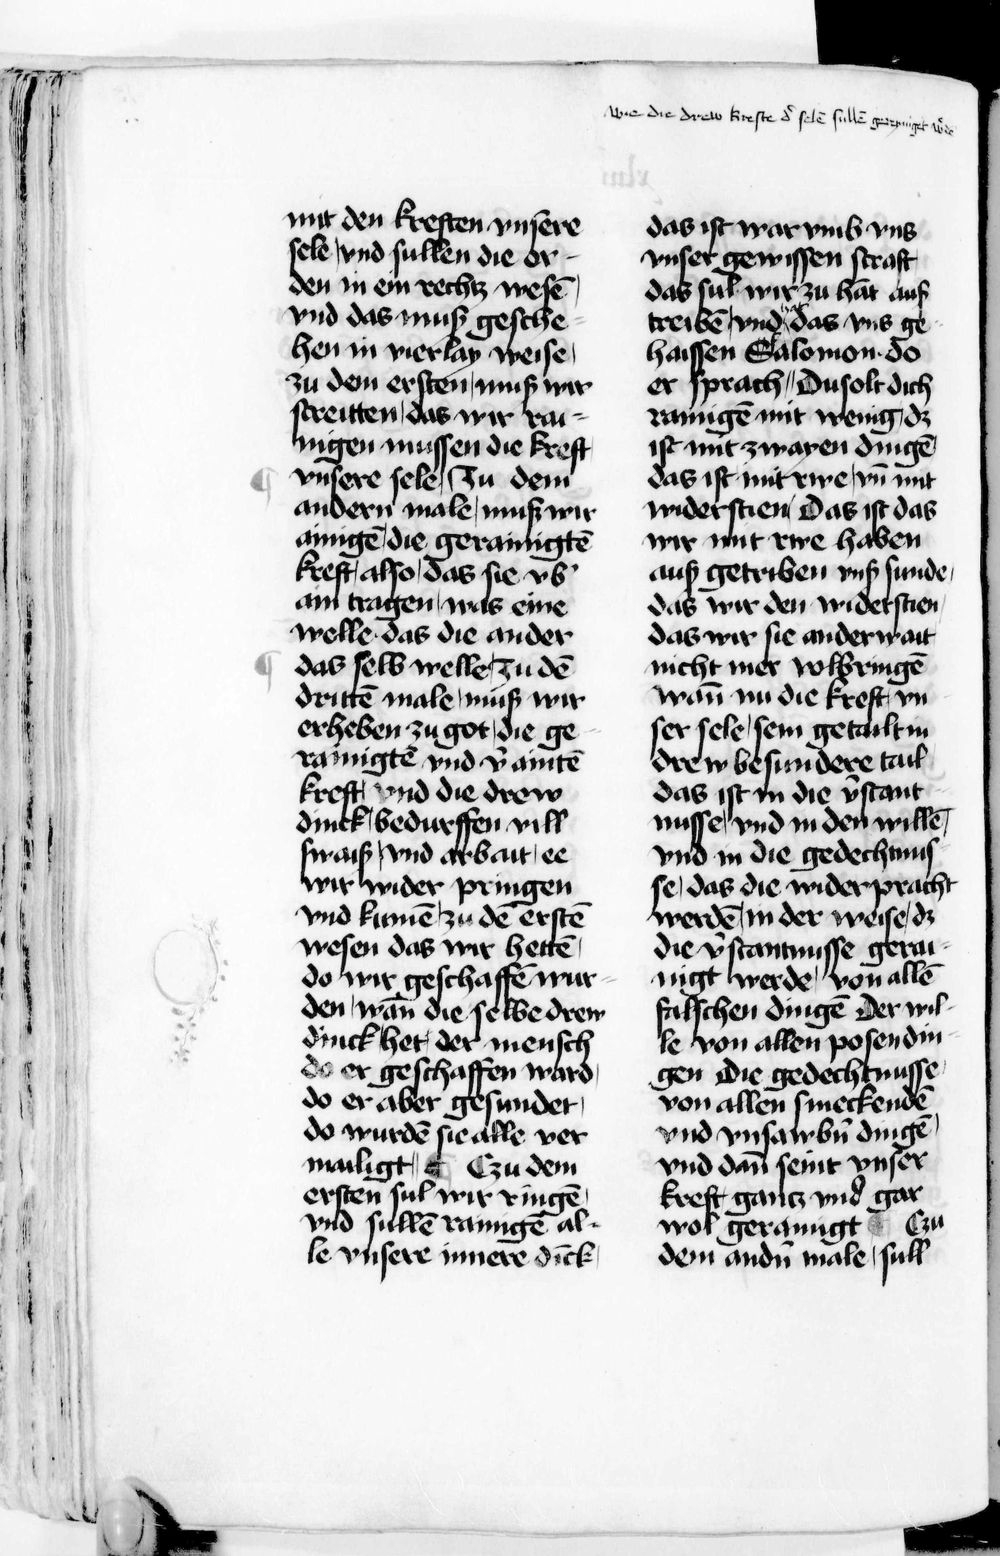 wie die drew krefte d̕ selē sullē gerayniget w̕dē
mit den kreften vnsere
sele / vnd sullen die or-
den in ein rechtz wesē /
vnd das muß gesche-
hen in vierlay weise /
zu dem ersten / muß wir
streitten / das wir rai-
nigen mussen die kreft
¶ vnsere sele / Zu dem
andern male / muß wir
ainigē / die gerainigtē
kreft / also / das sie vb̕
ain tragen / was eine
welle · das die ander
¶ das selb welle / zu dē
drittē male / muß wir
erheben zu got / die ge-
rainigtē vnd v̕aintē
kreft / vnd die drew
dinck / bedurffen vill
swaiß / vnd arbait / ee
wir wider pringen
vnd kumē / zu dē erstē
wesen das wir hettē /
do wir geschaffē wur-
den / wān die selbe drew
dinck het / der mensch
do er geschaffen ward /
do er aber gesundet /
do wurdē sie alle ver
mailigt / ¶ Czu dem
ersten sul wir ringē /
vnd sullē rainigē al-
le vnsere innere dīck /
das ist war vmb vns
vnser gewissen straft
das sul wir zu hāt auß
treibē / vnd das vns ge-
haissen Salomon · do
er sprach // Du solt dich
rainigē mit wenig / dz
ist mit zwayen dingē
das ist mit rwe / vn̄ mit
widerstien / Das ist das
wir mit rwe haben
auß getriben vnß sunde /
das wir den widerstien /
das wir sie anderwait
nicht mer volbringē
wān nu die kreft / vn-
ser sele / sein getailt in
drew besundere tail
das ist in die v̕stant-
nusse / vnd in den willē /
vnd in die gedechtnus-
se / das die wider pracht
werdē / in der weise / dz
die v̕stantnusse gerai-
nigt werde / von allē
falschen dingē Der wil-
le von allen posen din-
gen Die gedechtnusse /
von allen smeckendē
vnd vnsawbn̄ dingē /
vnd dān seint vnser
kreft gantz vnd gar
wol gerainigt ¶ Czu
dem andn̄ male / sull